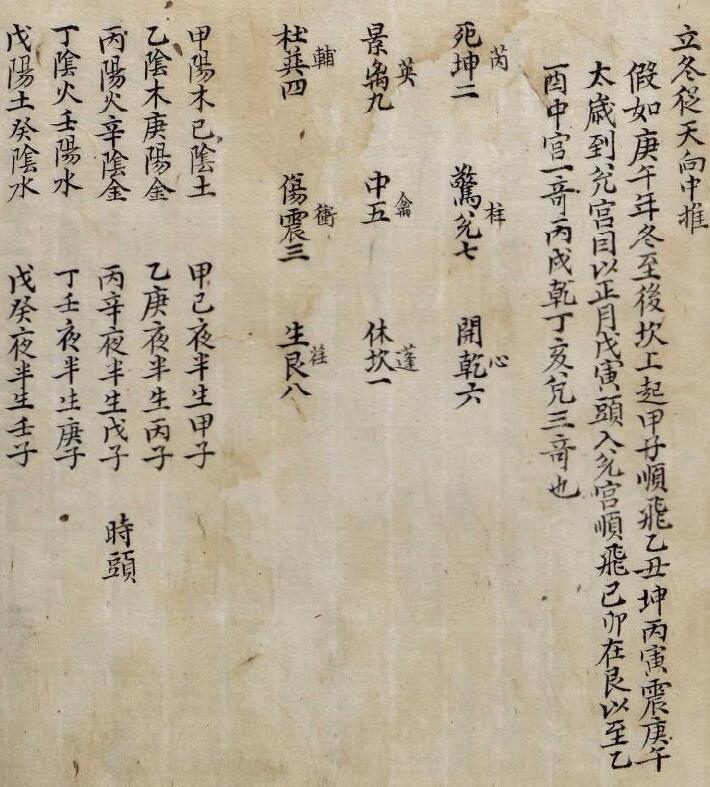 立冬從天向中推
假如庚午年冬至後坎上起甲子順飛乙丑坤丙寅震庚午
太歲到兊宮目以正月戊寅頭入兊宮順飛己卯在艮以至乙
酉中宮一竒丙戌乾丁亥兊三竒也
芮 柱 心
死坤二 驚兊七 開乾六
英 禽 蓬
景离九 中五 休坎一
輔 衝 荏
杜巽四 傷震三 生艮八
甲陽木己陰土 甲己夜半生甲子
乙陰木庚陽金 乙庚夜半生丙子
丙陽火辛陰金 丙辛夜半生戊子 時頭
丁陰火壬陽水 丁壬夜半生庚子
戊陽土癸陰水 戊癸夜半生壬子